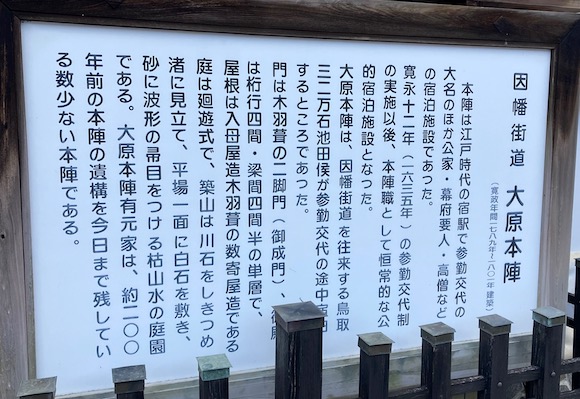 因幡街道 大原本陣
(寛政年間一七八九年~一八〇一年建築)
本陣は江戸時代の宿駅で参勤交代の
大名のほか公家・幕府要人・高僧など
の宿泊施設であった。
寛永十二年(一六三五年)の参勤交代制
の実施以後、本陣職として恒常的な公
的宿泊施設となった。
大原本陣は、因幡街道を往来する鳥取
三二万石池田侯が参勤交代の途中宿
するところであった。
門は木羽葺の二脚門(御成門)、
は桁行四間・梁間四間半の単層で、
屋根は入母屋造木羽葺の数寄屋造である
庭は廻遊式で、築山は川石をしきつめ
渚に見立て、平場一面に白石を敷き、
砂に波形の帚目をつける枯山水の庭園
である。大原本陣有元家は、約二〇〇
年前の本陣の遺構を今日まで残してい
る数少ない本陣である。